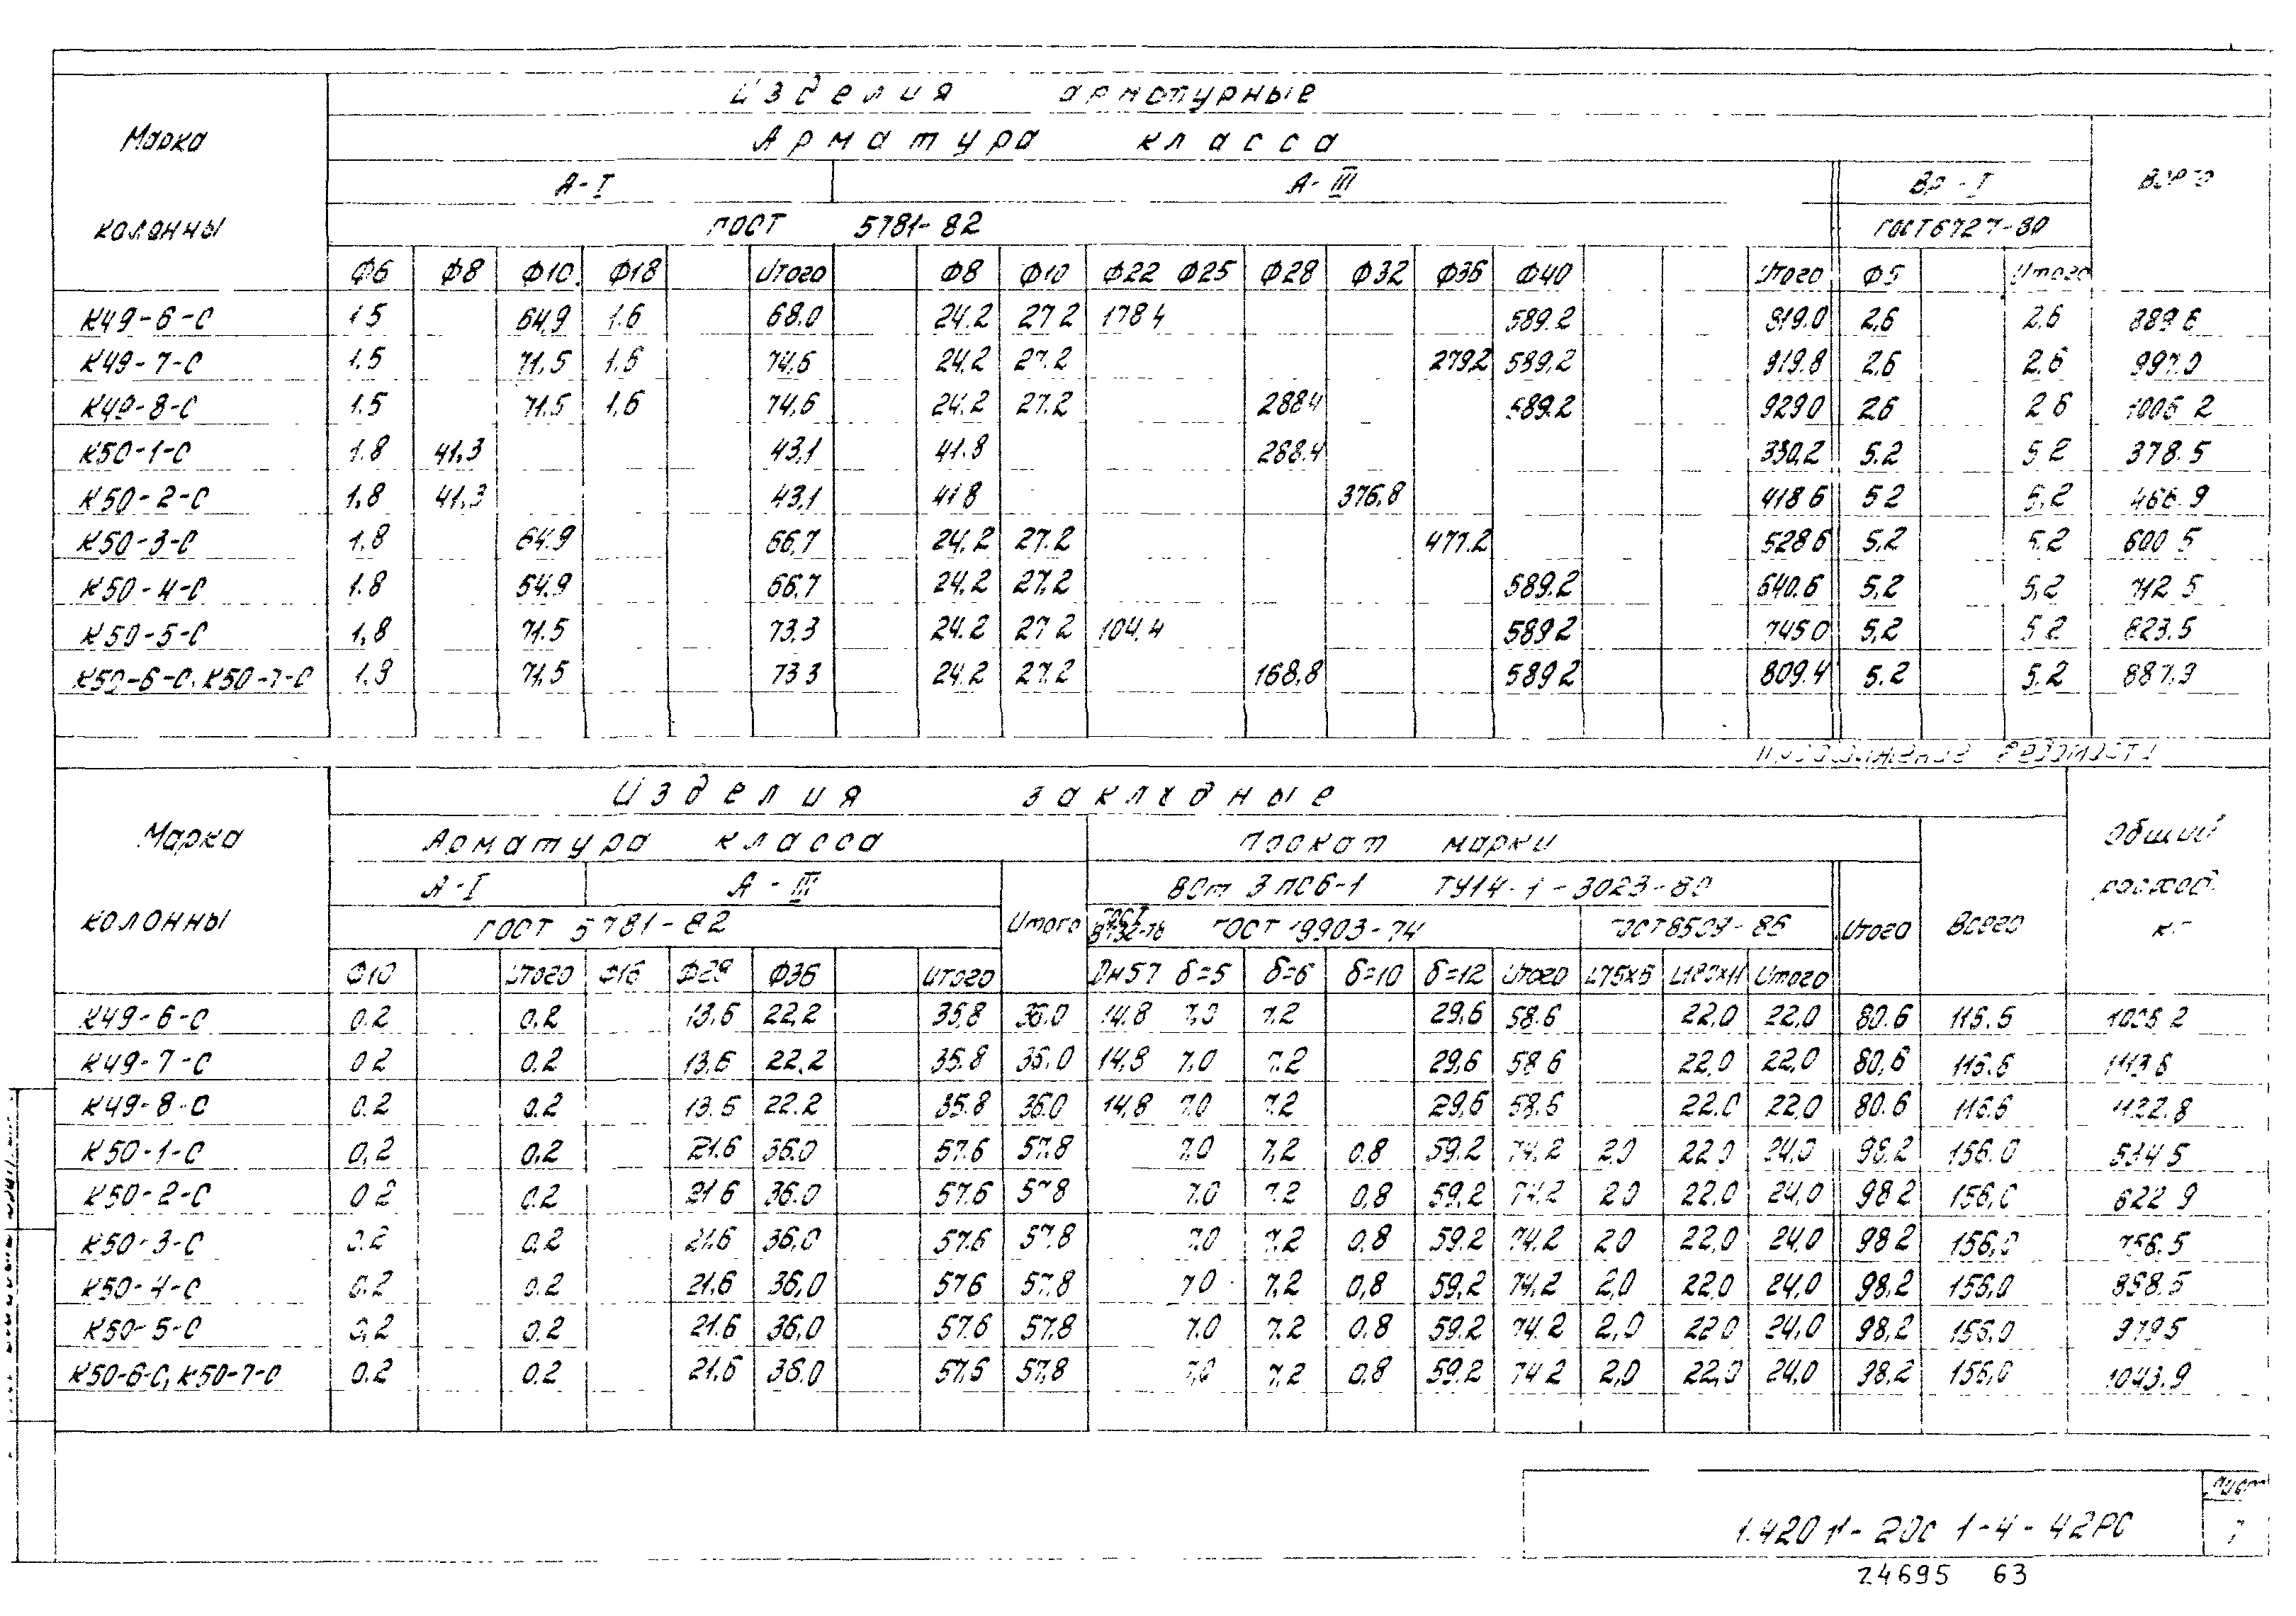 Изделия арматурные
Марка колонны
Арматура класса
Всего
А-I А-III Вр-I
ГОСТ 5781-82 ГОСТ 6727-80
Ф6 Ф8 Ф10 Ф18 Итого Ф8 Ф10 Ф22 Ф25 Ф28 Ф32 Ф36 Ф40 Итого Ф5 Итого
К49-6-С 1.5 64,9 1.6 68.0 24.2 27.2 178.4 589.2 819.0 2,6 2,6 889.6
К49-7-С 1,5 71,5 1,6 74,6 24,2 27.2 279,2 589,2 919.8 2,6 2,6 997.0
К49-8-С 1.5 71.5 1,6 74,6 24.2 27.2 288.4 589.2 929.0 2.6 2.6 1006.2
К50-1-С 1.8 41,3 43,1 41.8 288.4 330,2 5.2 5.2 378.5
К50-2-С 1,8 41,3 43,1 41.8 376,8 418.6 5.2 5,2 466.9
К50-3-С 1,8 64.9 66,7 24,2 27.2 477.2 528.6 5,2 5.2 600.5
К50-4-С 1.8 64.9 66,7 24,2 27,2 589.2 640.6 5,2 5,2 712.5
К50-5-С 1,8 71.5 73,3 24.2 27.2 104,4 589.2 745.0 5,2 5.2 823.5
К50-6-С, К50-7-С 1.8 71,5 73.3 24.2 27.2 168,8 589.2 809.4 5.2 5.2 887,9
Продолжение ведомости
Изделия закладные
Марка колонны
Общий расход, кг
Арматура класса Прокат марки
А-I А-III ВСт 3 пс6-1 ТУ14-1-3023-80
ГОСТ 5781-82 Итого ГОСТ 8732-78 ГОСТ 19903-74 ГОСТ 8509-86 Итого Всего
Ф10 Итого Ф16 Ф28 Ф36 Итого Дн57 δ=5 δ=6 δ=10 δ=12 Итого L75х6 L180х11 Итого
К49-6-С 0.2 0,2 13.6 22,2 35,8 36.0 14.8 7,0 7.2 29,6 58.6 22,0 22,0 80.6 116.6 1006.2
К49-7-С 0.2 0.2 13.6 22,2 35.8 36.0 14,8 7.0 7.2 29,6 58.6 22,0 22,0 80,6 116.6 1113.6
К49-8-С 0.2 0.2 13.6 22.2 35.8 36.0 14,8 7.0 7.2 29,6 58.6 22.0 22,0 80.6 116.6 1122.8
К50-1-С 0,2 0,2 21.6 36.0 57.6 57.8 7.0 7,2 0.8 59.2 74.2 2.0 22.0 24,0 98.2 156.0 534.5
К50-2-С 0.2 0.2 21.6 36.0 57.6 57.8 7.0 7.2 0,8 59,2 74.2 2.0 22.0 24,0 98.2 156,0 622.9
К50-3-С 0.2 0.2 21.6 36,0 57.6 57.8 7.0 7.2 0,8 59.2 74.2 2.0 22,0 24,0 98.2 156,0 756.5
К50-4-С 0.2 0.2 21,6 36,0 57.6 57.8 7.0 7,2 0,8 59,2 74,2 2,0 22,0 24,0 98,2 156,0 868.5
К50-5-С 0,2 0.2 21.6 36,0 57.6 57.8 7.0 7.2 0.8 59.2 74.2 2,0 22.0 24,0 98,2 156.0 979.5
К50-6-С, К50-7-С 0.2 0.2 21,6 36.0 57,6 57,8 7,0 7,2 0,8 59.2 74.2 2,0 22,0 24,0 98,2 156,0 1043.9
Лист
1.420.1-20с 1-4-42РС 7
24695 63